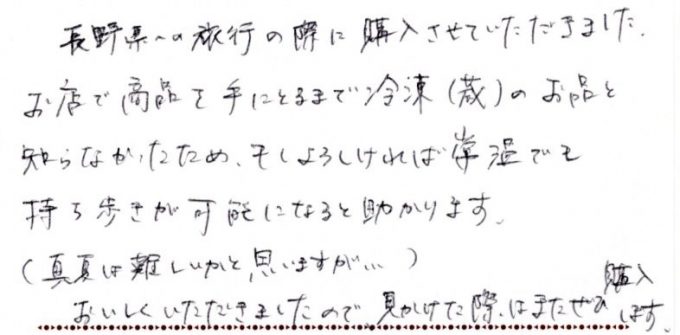 長野県への旅行の際に購入させていただきました。
お店で商品を手にとるまで冷凍(蔵)のお品と
知らなかったため、もしよろしければ常温でも
持ち歩きが可能になると助かります。
(真夏は難しいかと思いますが…)
おいしくいただきましたので、見かけた際はまたぜひ購入します。